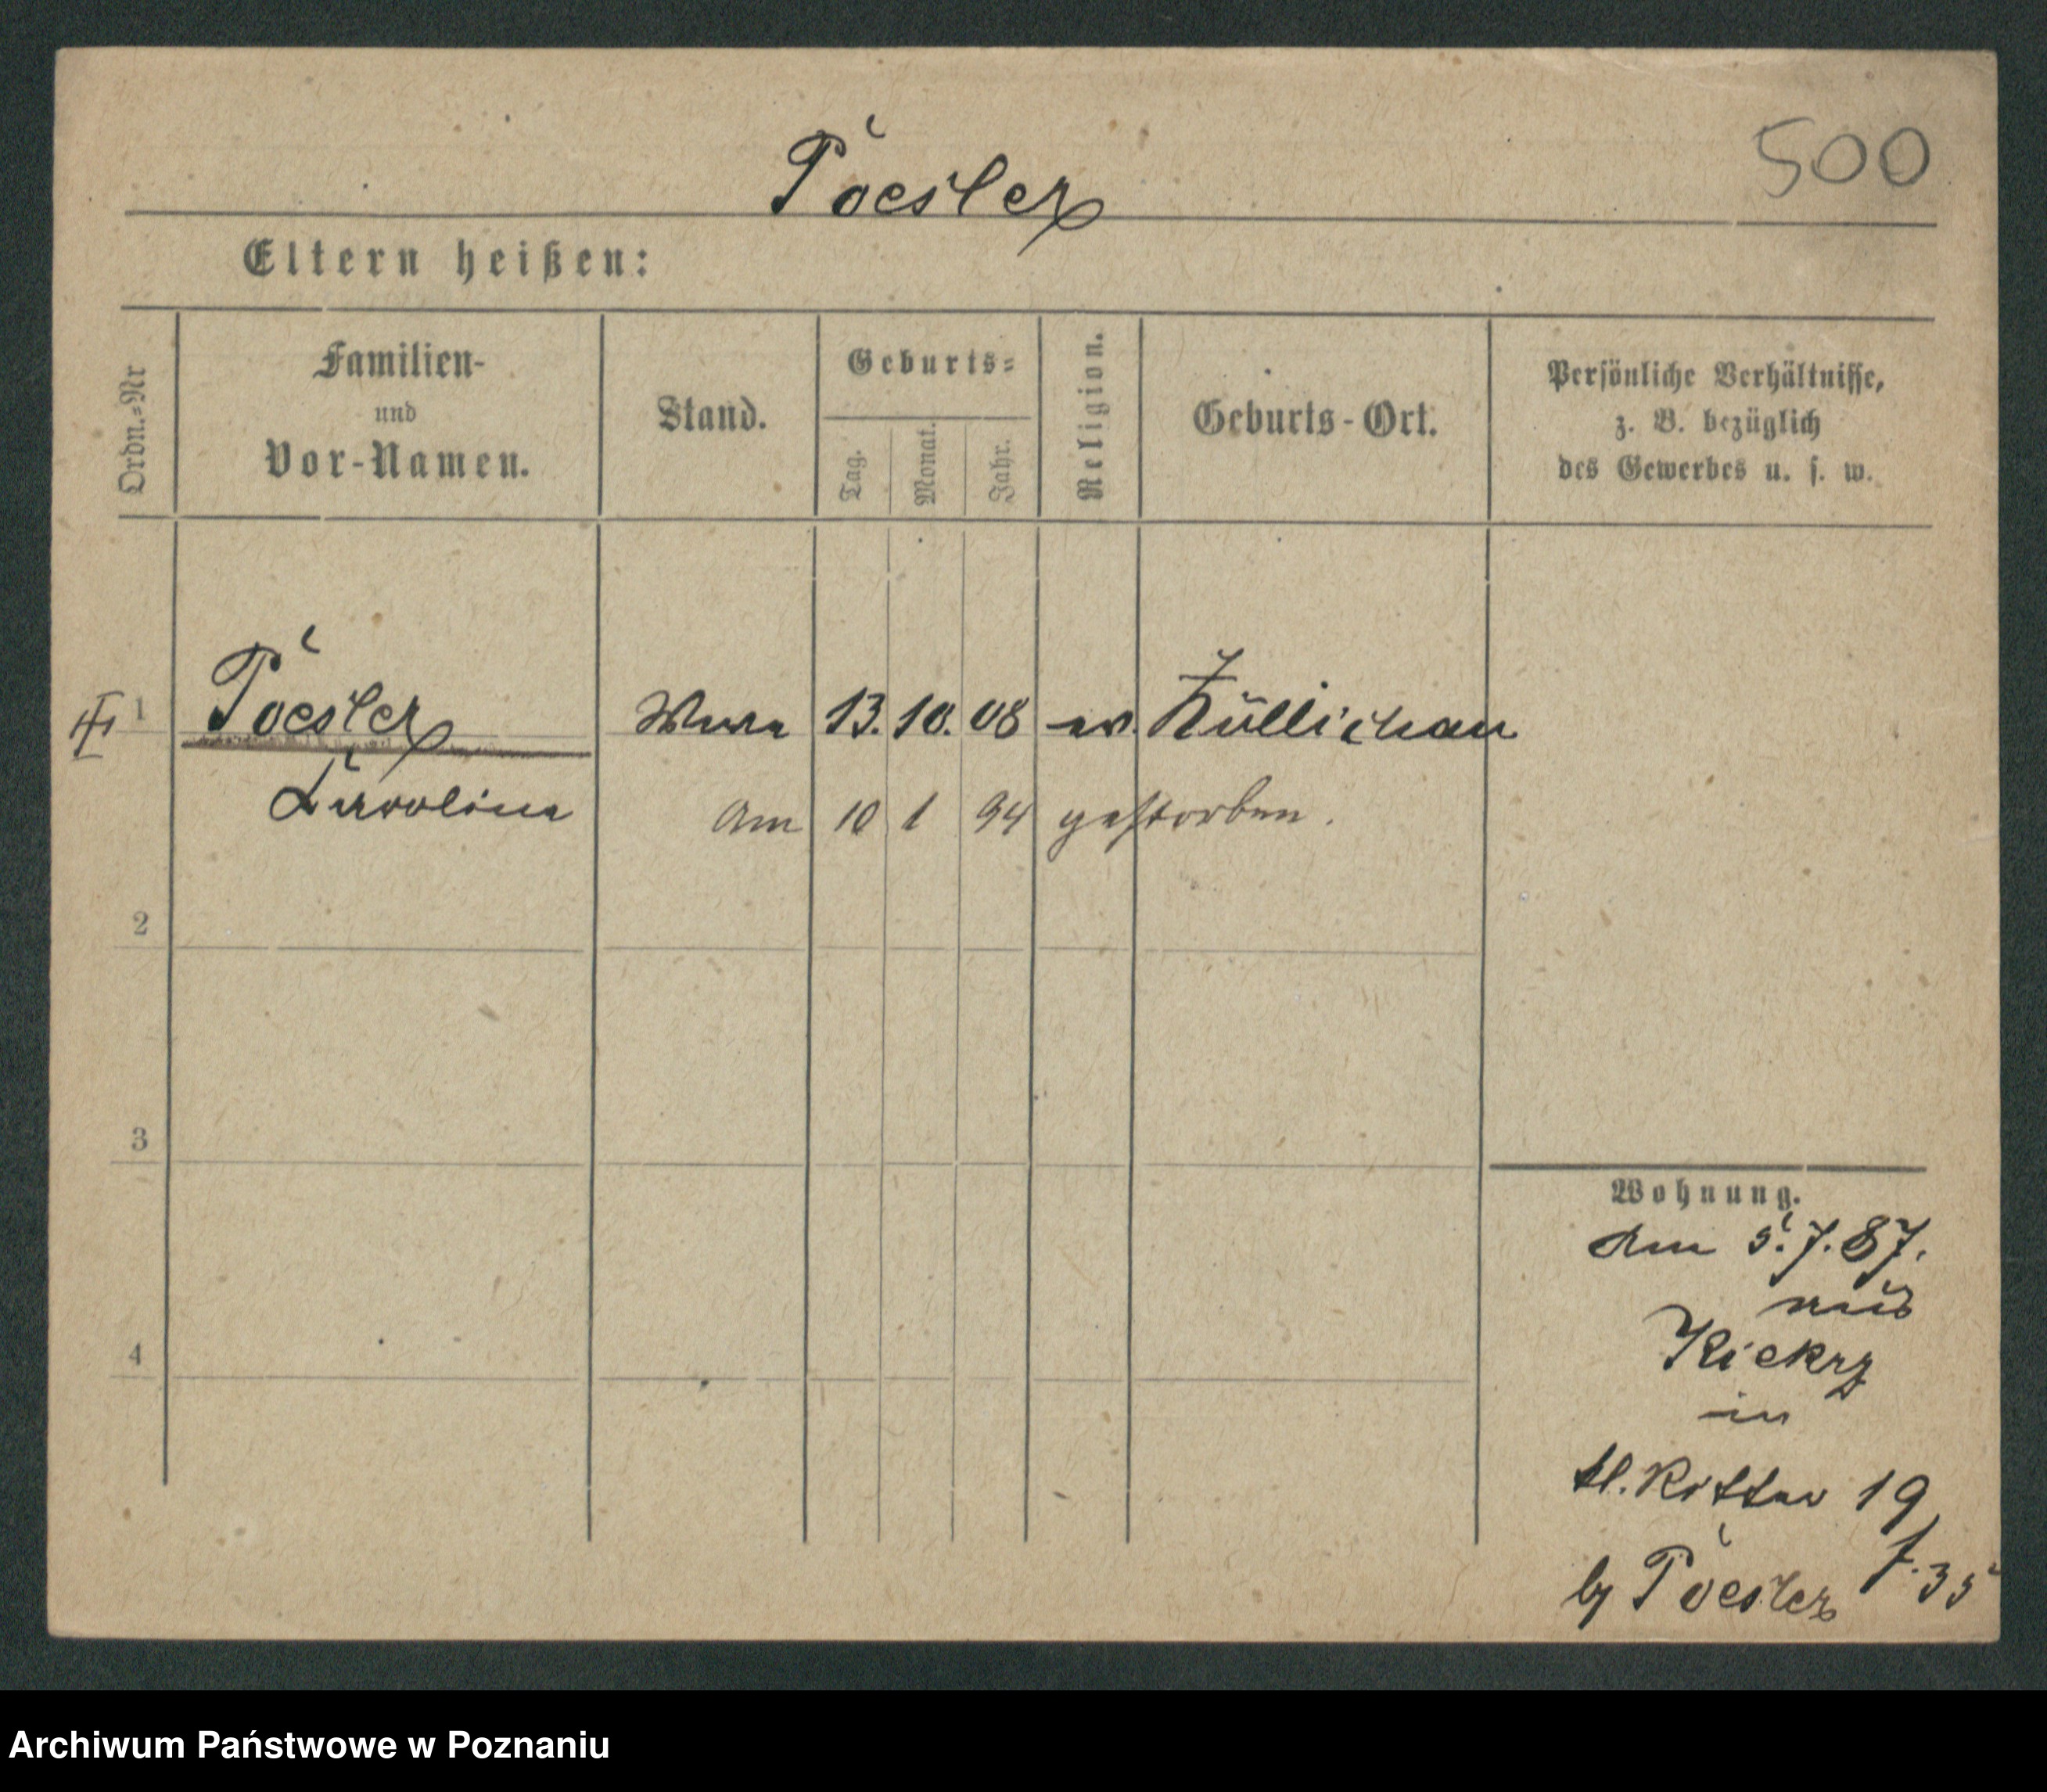 500
Poesler
Eltern heißen:
Ordn.=Nr
Familien-
und
Vor-Namen.
Stand.
Geburts=
Tag.
Monat.
Jahr.
Religion.
Geburts-Ort.
Persönliche Verhältnisse,
z. B. bezüglich
des Gewerbes u. s. w.
1 Poesler Wwe 13. 10. 08 ev. Züllichau
Karoline am 10 1 94 gestorben.
2
3
4
Wohnung.
Am 5.7.87.
aus
Kiekrz
in
kl. Ritter 19
by Poesler f. 35
Archiwum Państwowe w Poznaniu